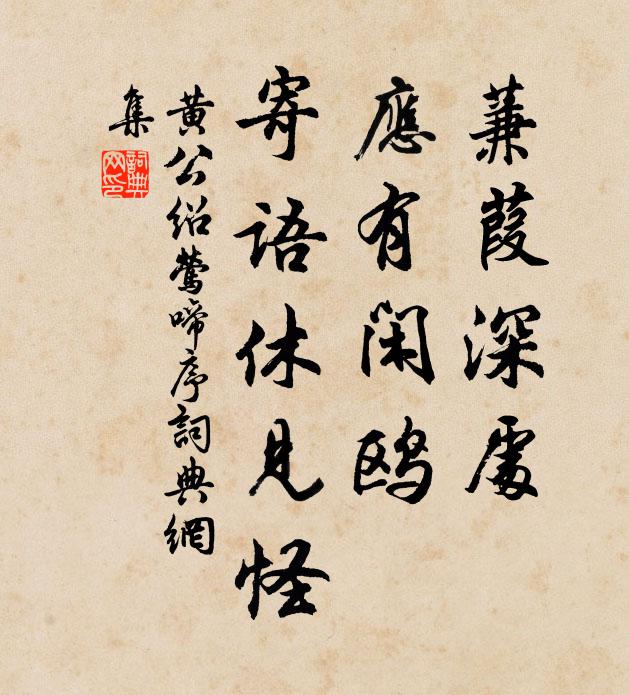 蒹葭深處
應有閑鷗
寄語休見怪
黃公紹鶯啼序詞典網
集
詞典網印